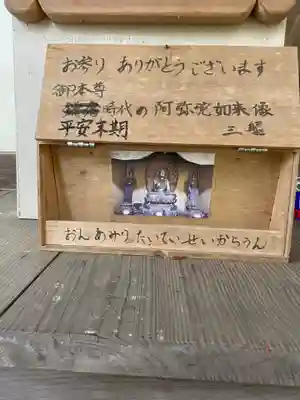 お寄り ありがとうございます
御本尊
鎌倉時代の阿弥陀如来像
平安末期 三躯
おんあみりたいていせいからうん